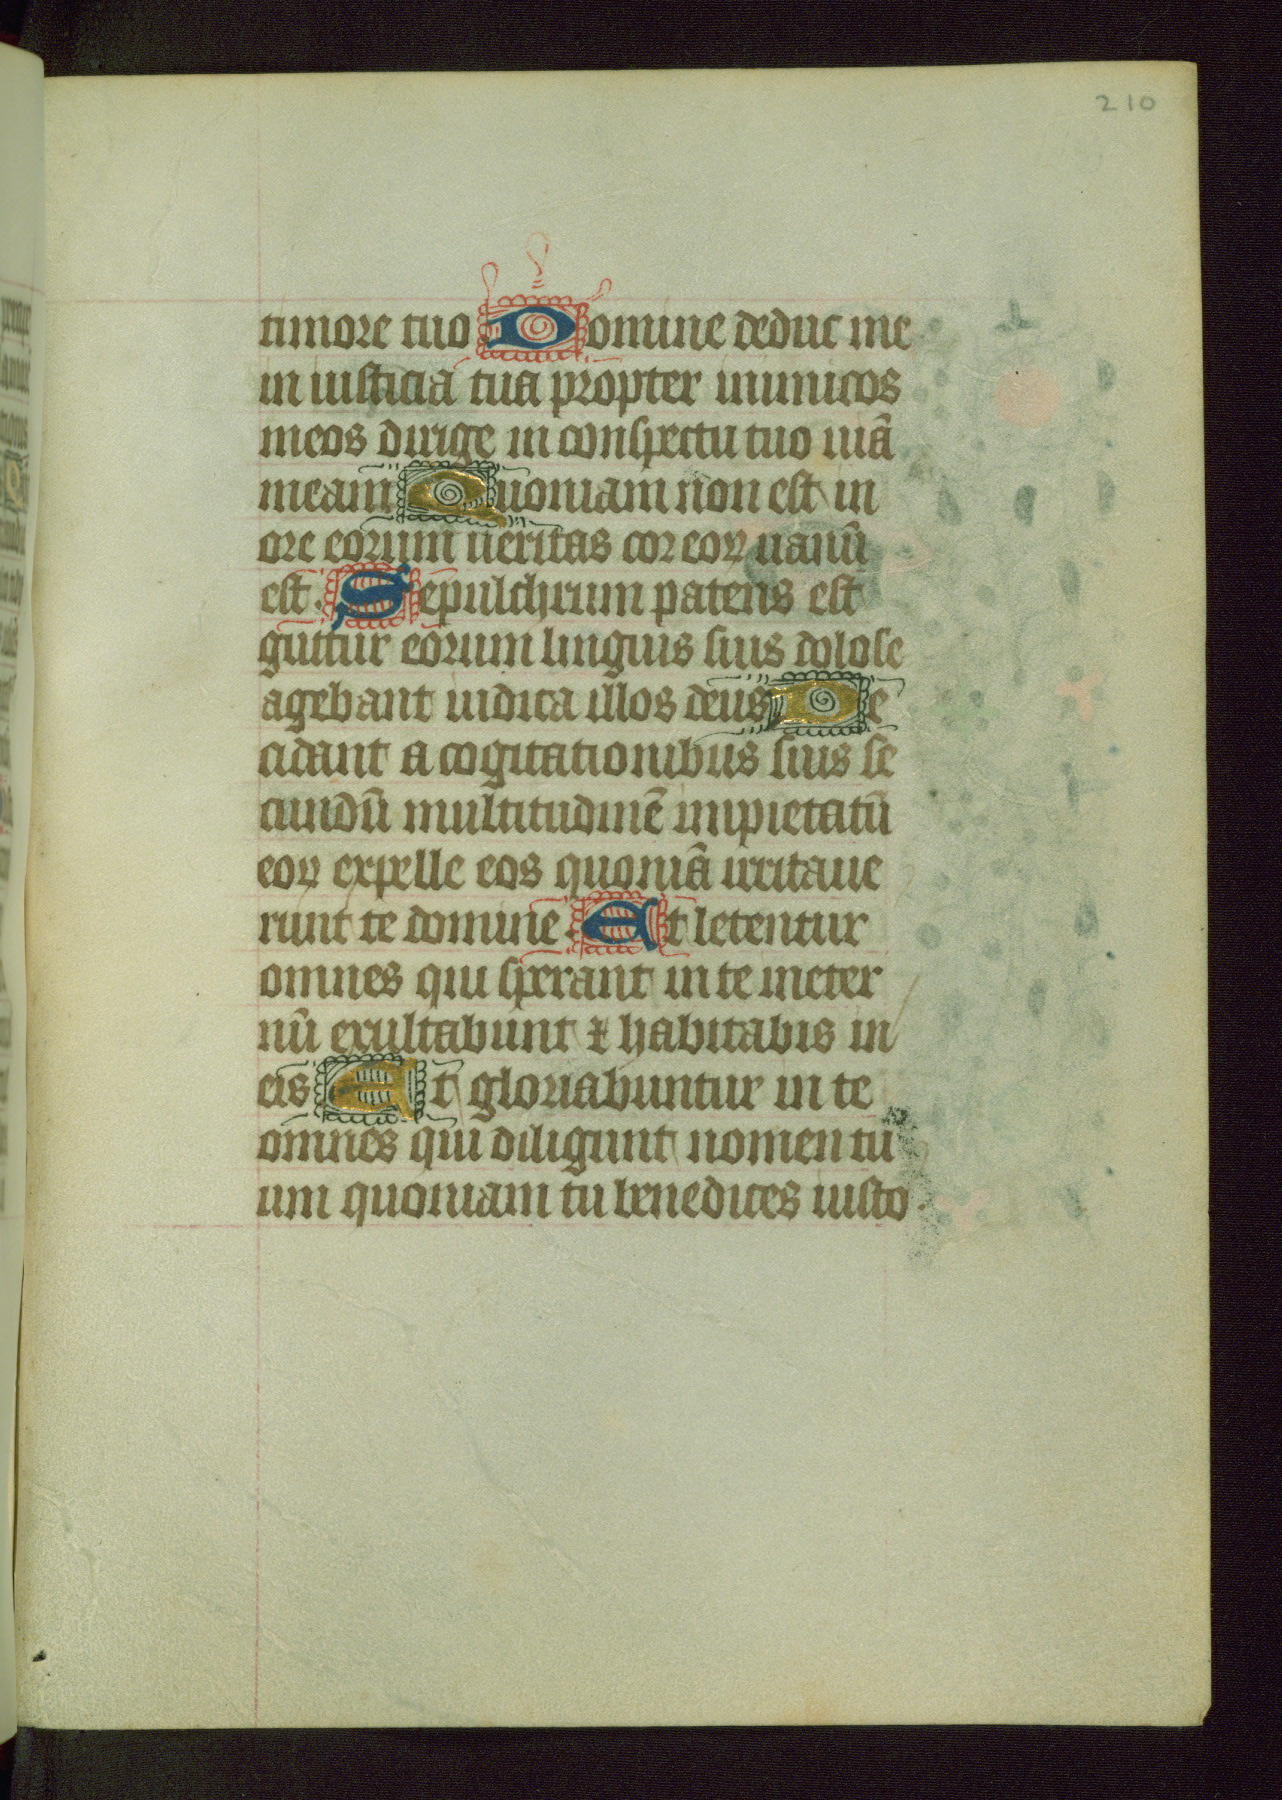 210
timore tuo Domine deduc me
in iusticia tua propter inimicos
meos dirige in conspectu tuo uiã
meam Quoniam non est in
ore eorum ueritas cor eoꝝ uanũ
est. Sepulchrum patens est
guttur eorum linguis suis dolose
agebant iudica illos deus De
cidant a cogitationibus suis se
cundũ multitudinẽ impietatũ
eoꝝ expelle eos quoniã irritaue
runt te domine. Et letentur
omnes qui sperant in te ineter
nũ exultabunt ⁊ habitabis in
eis Et gloriabuntur in te
omnes qui diligunt nomen tu
um quoniam tu benedices iusto.